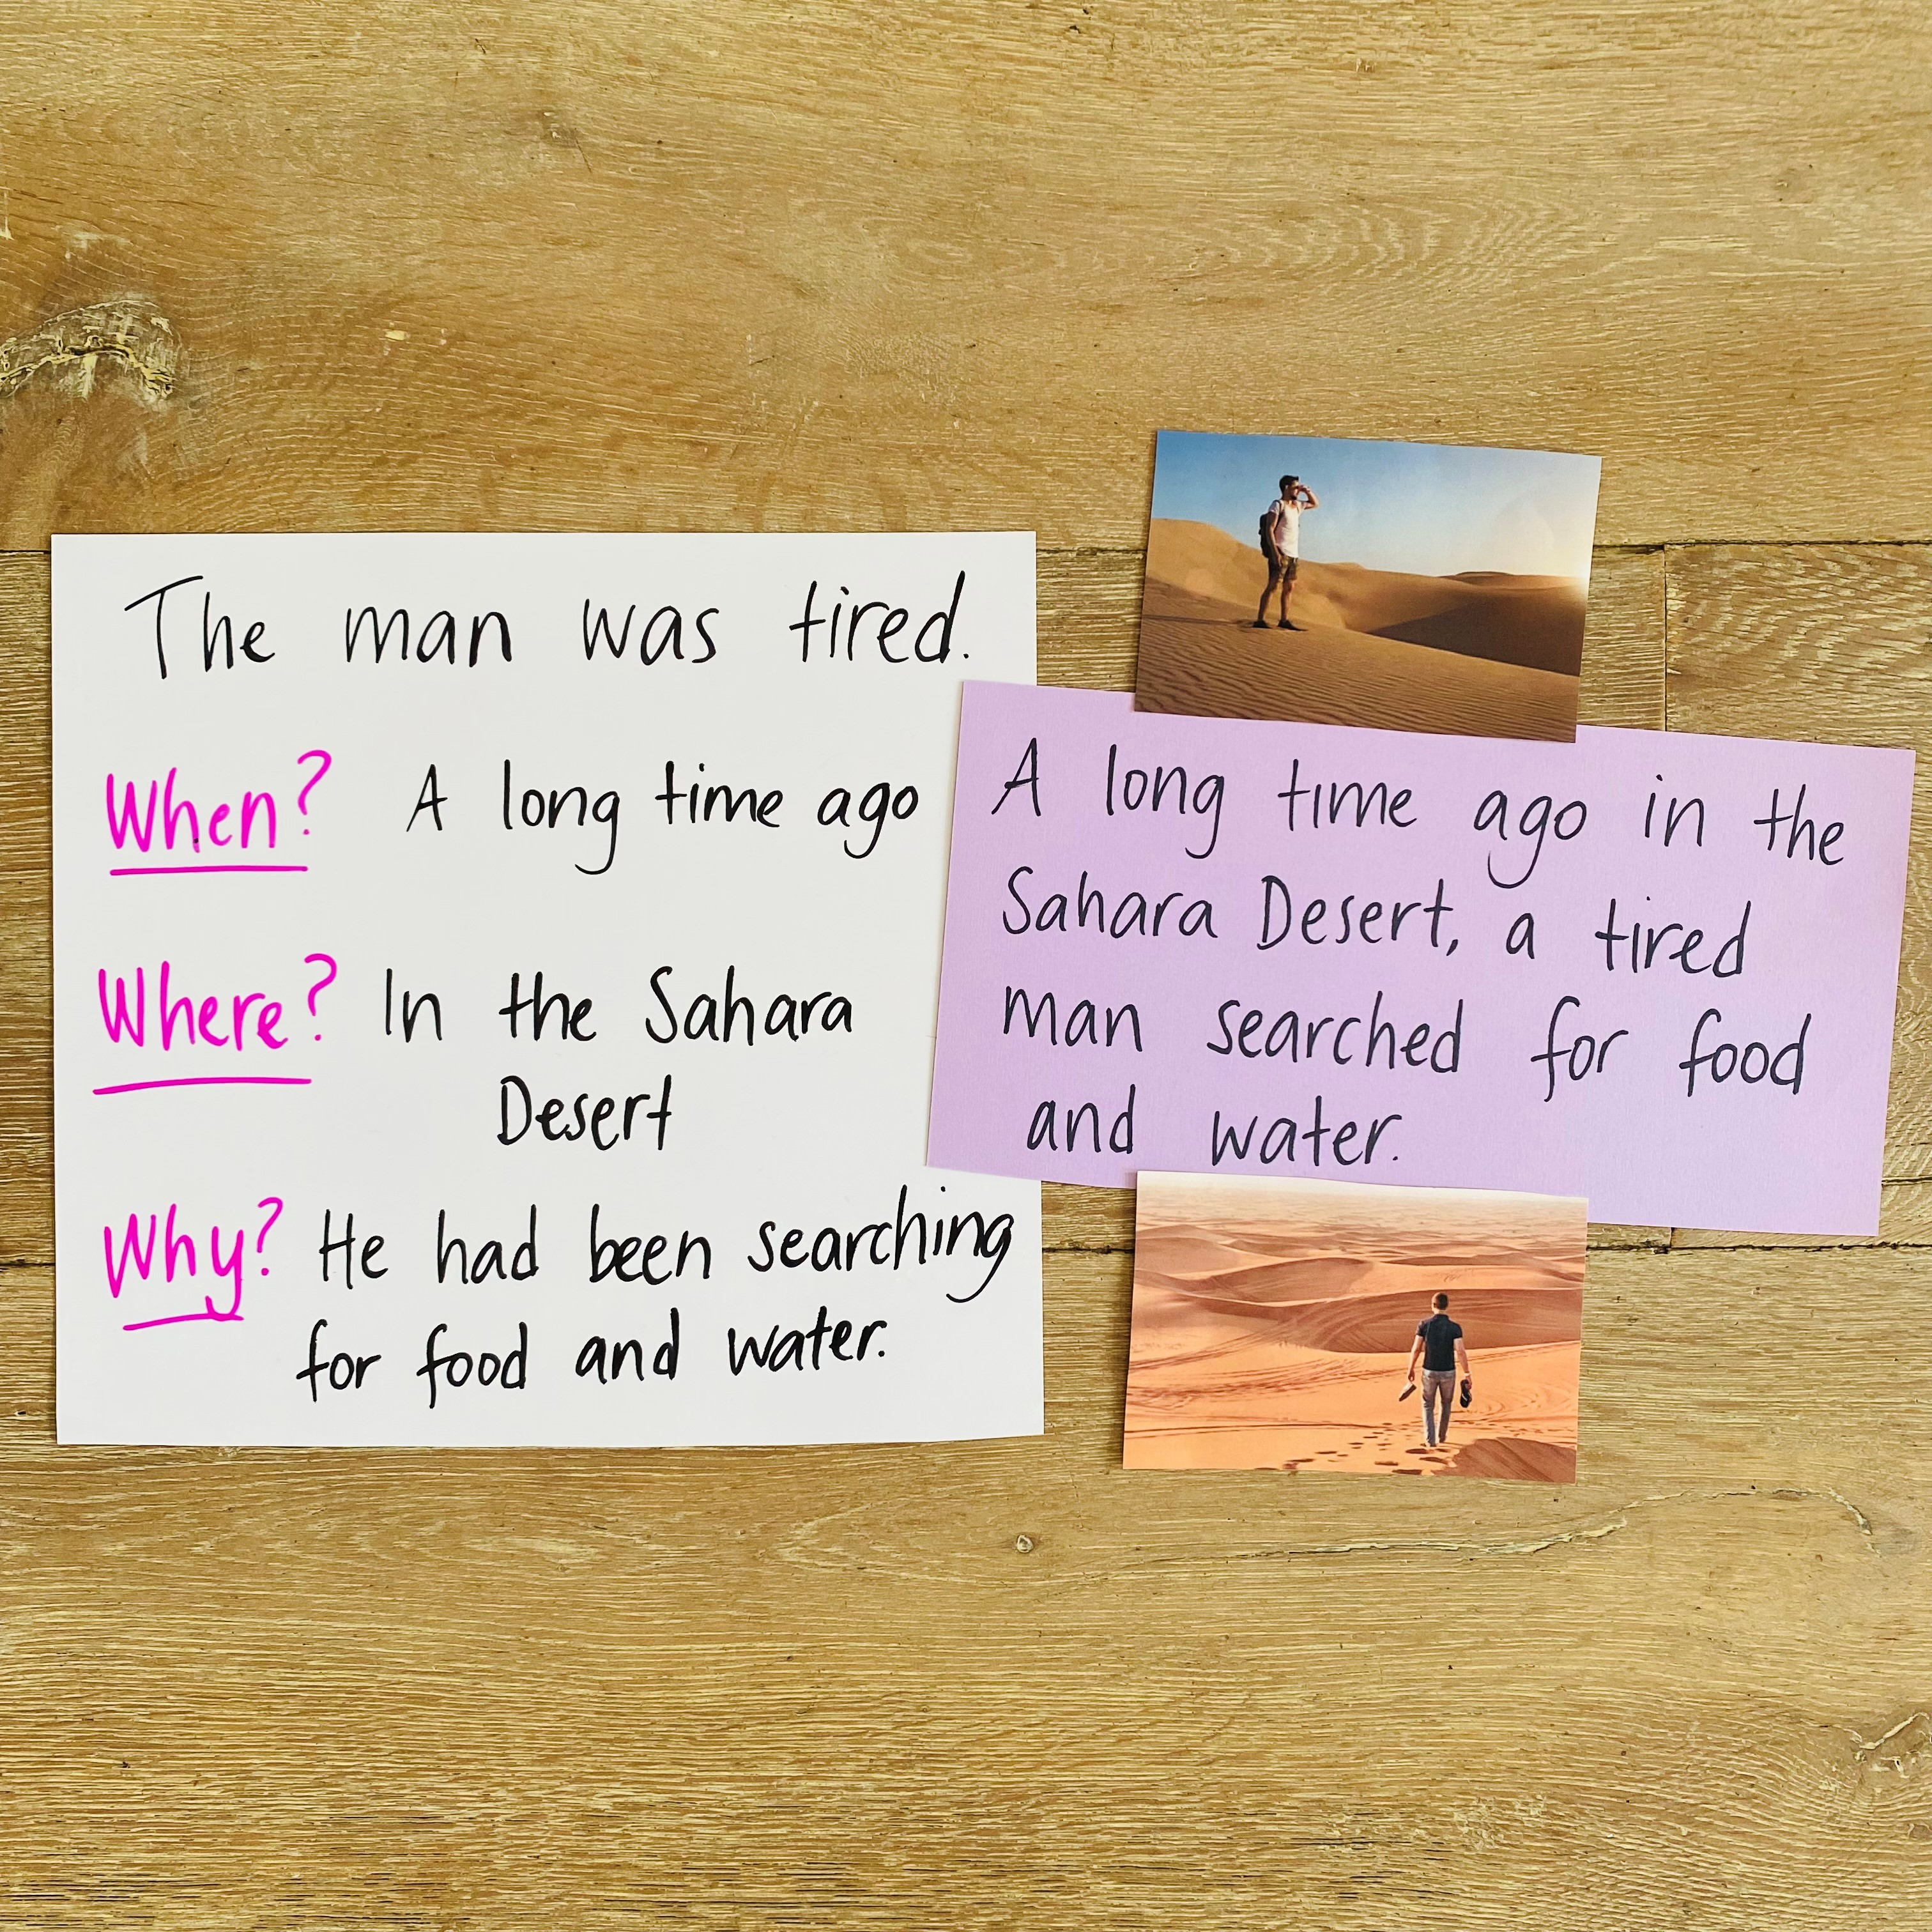 The man was tired.
When? A long time ago
Where? In the Sahara
Desert
Why? He had been searching
for food and water.
A long time ago in the
Sahara Desert, a tired
man searched for food
and water.